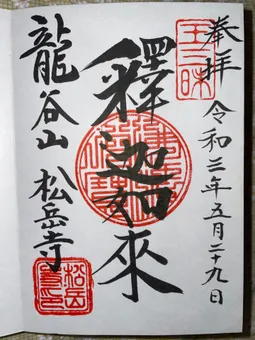 奉拝 令和三年五月二十九日
釋迦如來
龍谷山 松岳寺
王三昧